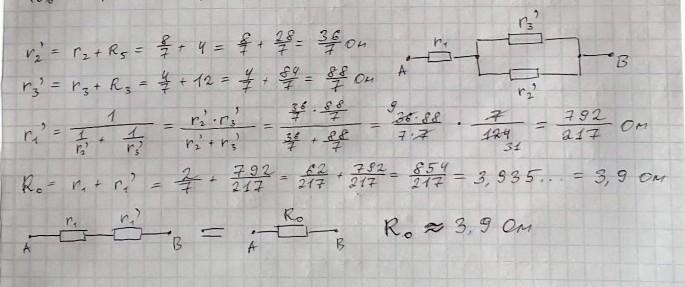 r₂' = r₂ + R₅ = 8/7 + 4 = 8/7 + 28/7 = 36/7 Ом
r₃' = r₃ + R₃ = 4/7 + 12 = 4/7 + 84/7 = 88/7 Ом
A r₁ r₃' r₂' B
r₁' = 1/(1/r₂' + 1/r₃') = (r₂' · r₃')/(r₂' + r₃') = (36/7 · 88/7)/(36/7 + 88/7) = 9 (36 · 88)/(7 · 7) · 7/124 31 = 792/217 Ом
R₀ = r₁ + r₁' = 2/7 + 792/217 = 62/217 + 792/217 = 854/217 = 3,935... = 3,9 Ом
A r₁ r₁' B = A R₀ B R₀ ≈ 3,9 Ом